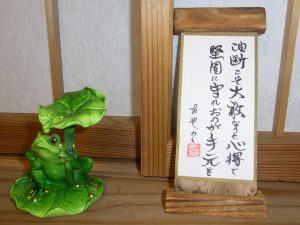 油断こそ大敵なりと心得て
堅固に守れおのが手元を